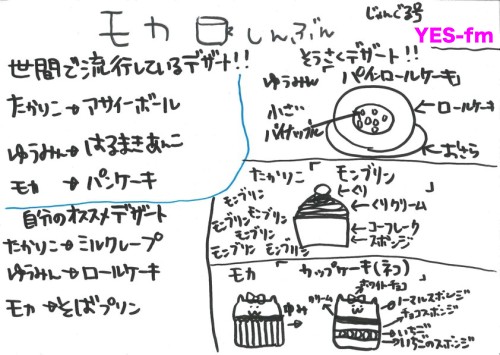 モカしんぶん
じゅんび号
YES-fm
世間で流行しているデザート!!
たかりこ→アサイーボール
ゆうみん→はるまきあんこ
モカ→パンケーキ
自分のオススメデザート
たかりこ→ミルクレープ
ゆうみん→ロールケーキ
モカ→そばプリン
そうさくデザート!!
ゆうみん「パインロールケーキ」
小さいパイナップル
ロールケーキ
おさら
たかりこ「モンブリン」
モンブリン
モンブリン
モンブリン モンブリン
モンブリン
モンブリン モンブリン
くり
くりクリーム
コーフレーク
スポンジ
モカ「カップケーキ(ネコ)」
ゆみ
ホワイトチョコ
クリーム
ノーマルスポンジ
チョコスポンジ
いちご
いちごのスポンジ